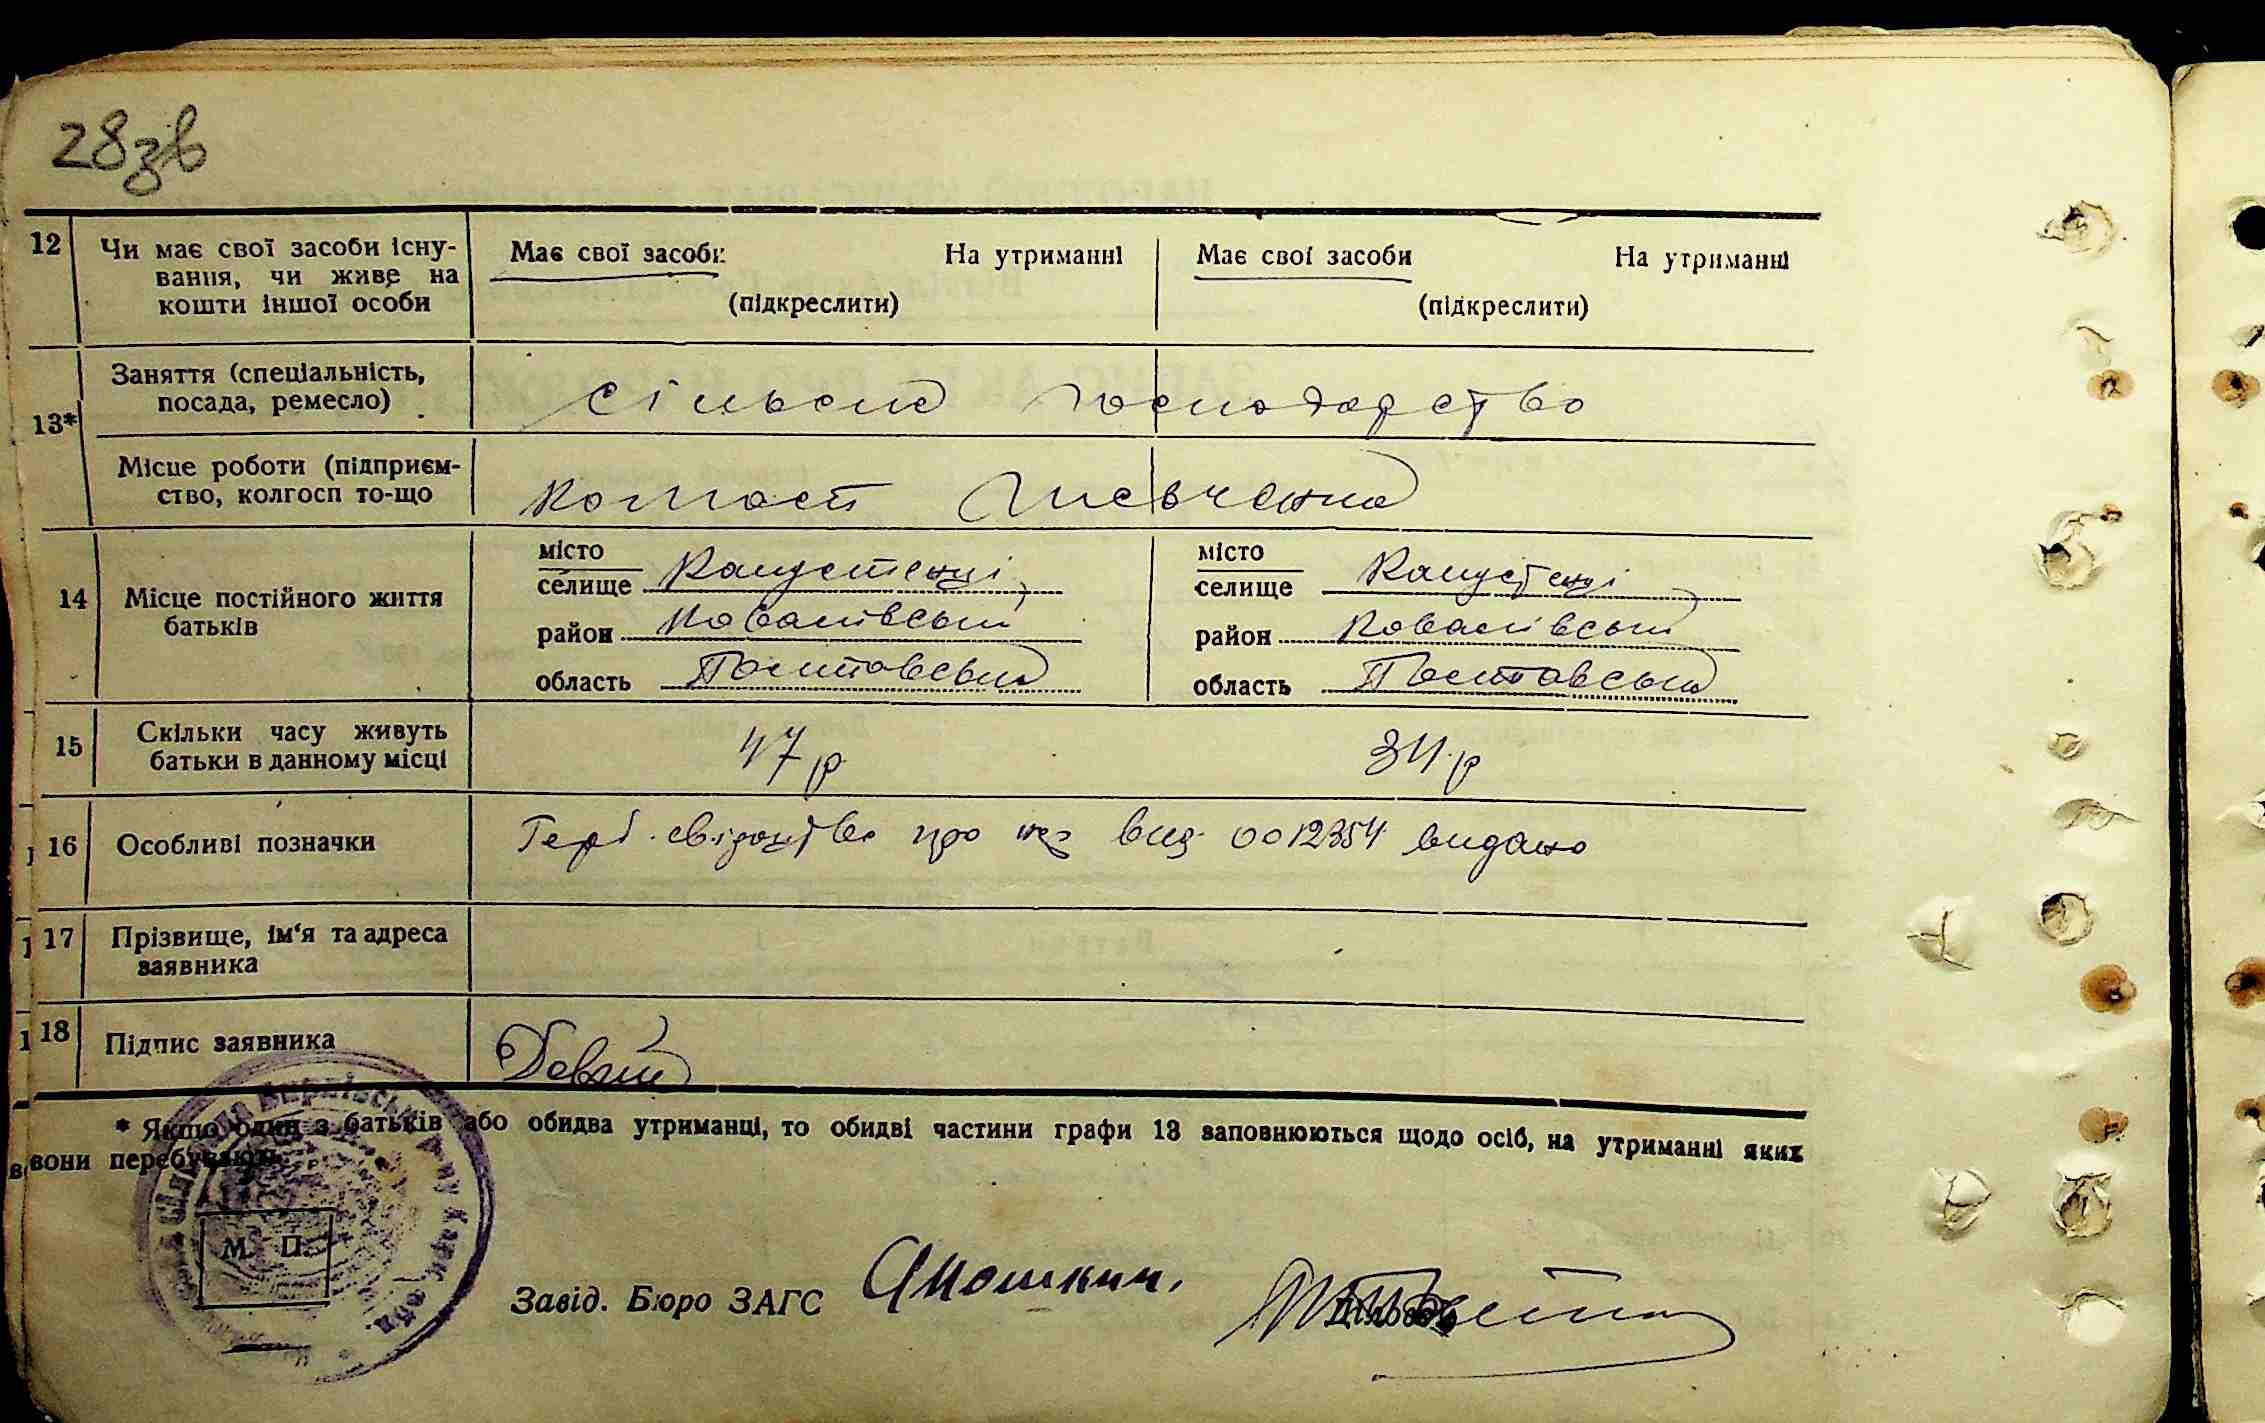 28зв
12 Чи має свої засоби існу-
вання, чи живе на
кошти іншої особи
Має свої засоби На утриманні
(підкреслити)
Має свої засоби На утриманні
(підкреслити)
13*
Заняття (спеціальність,
посада, ремесло)
сільске господарство
Місце роботи (підприєм-
ство, колгосп то-що
колгосп Шевченка
14 Місце постійного життя
батьків
місто
селище Капустенці
район Ковалівський
область Полтавська
місто
селище Капустенці
район Ковалівський
область Полтавська
15 Скільки часу живуть
батьки в данному місці
47 р 34 р
16 Особливі позначки
Герб. свідоцтво про видано
17 Прізвище, ім‘я та адреса
заявника
18 Підпис заявника
* Якщо один з батьків або обидва утриманці, то обидві частини графи 13 заповнюються щодо осіб, на утриманні яких
вони перебувають.
М. П.
Завід. Бюро ЗАГС